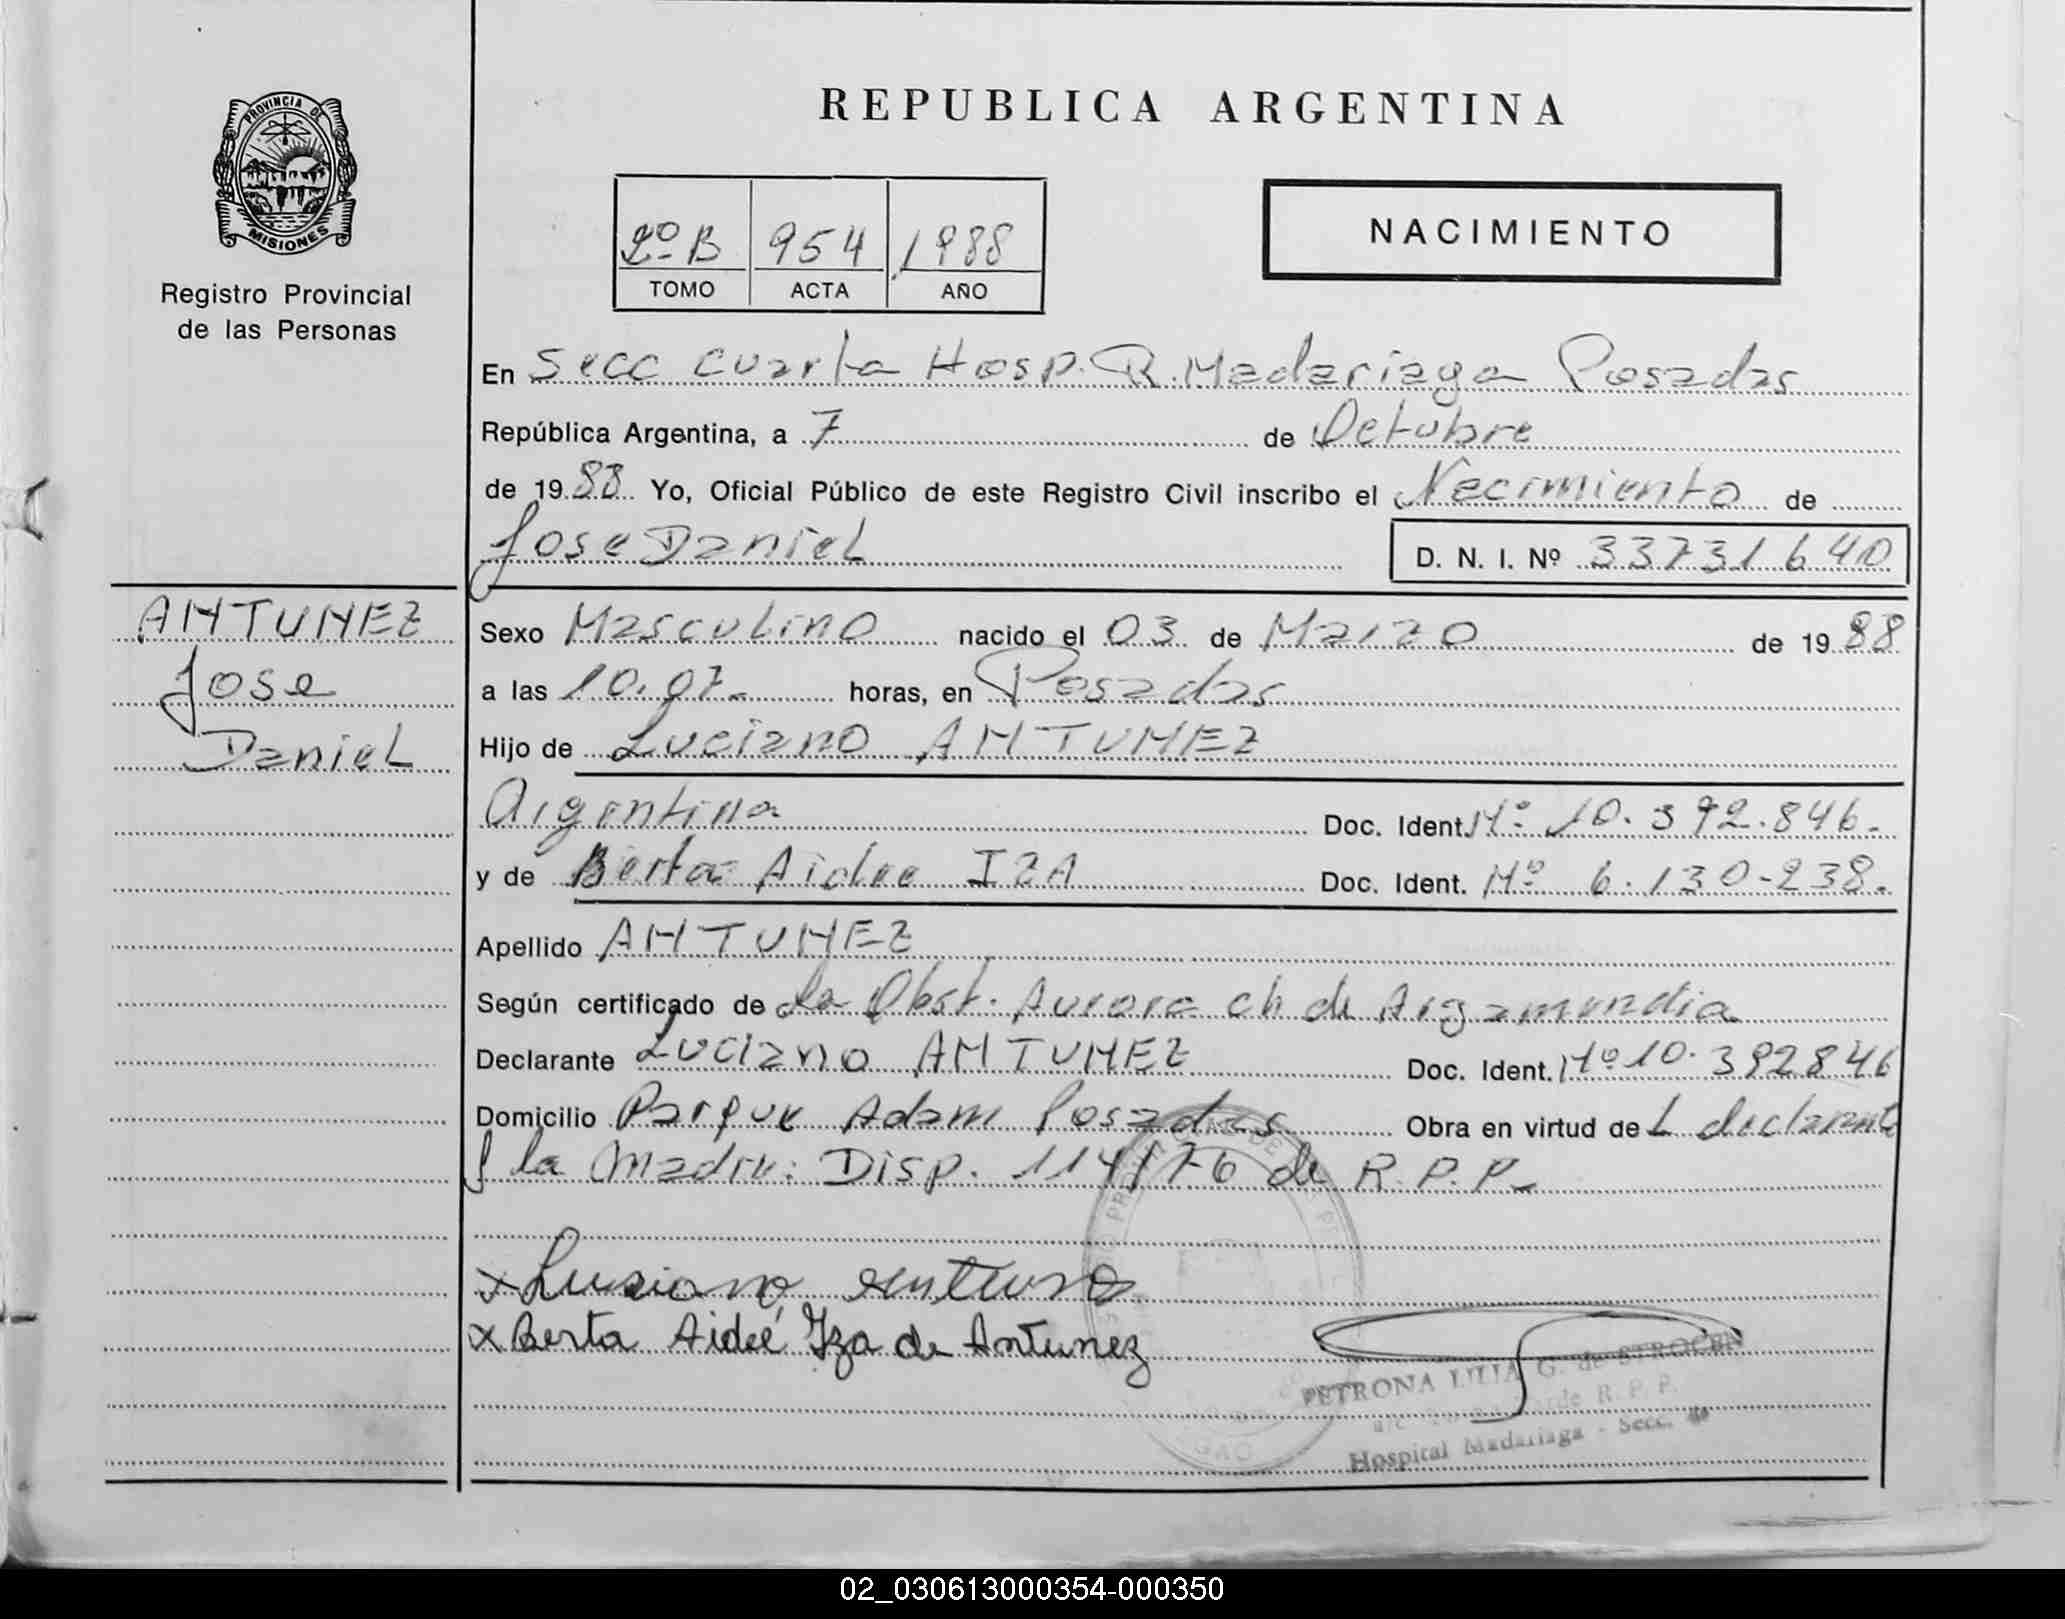 REPUBLICA ARGENTINA
PROVINCIA DE
MISIONES
Registro Provincial
de las Personas
2º B 954 1988
TOMO ACTA AÑO
NACIMIENTO
En Secc Cuarta Hosp. R. Madariaga Posadas
República Argentina, a 7 de Octubre
de 1988 Yo, Oficial Público de este Registro Civil inscribo el Nacimiento de
Jose Daniel D. N. I. Nº 33731640
ANTUNEZ
Jose
Daniel
Sexo Masculino nacido el 03 de Marzo de 1988
a las 10.07.- horas, en Posadas
Hijo de Luciano ANTUNEZ
Argentina Doc. Ident. Nº 10.392.846.
y de Berta Aidee IZA Doc. Ident. Nº 6.130-238.
Apellido ANTUNEZ
Según certificado de La Obst. Aurora Ch de Argamundia
Declarante Luciano ANTUNEZ Doc. Ident. Nº 10.392846
Domicilio Parque Adam Posadas Obra en virtud de L declarante
y la Madre: Disp. 114/76 de R.P.P.-
x Lusiano
x Berta Aideé Iza de Antunez
PETRONA LILIA G. de STROCEN
R. P. P.
Hospital Madariaga - Secc. 4a
02_030613000354-000350